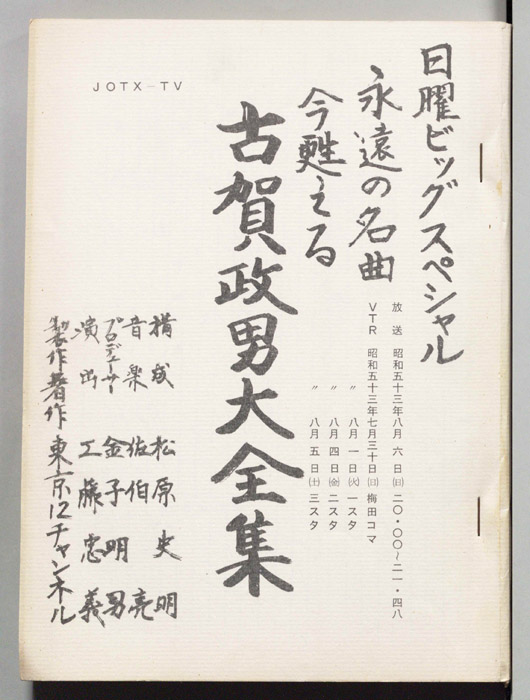 日曜ビッグスペシャル
永遠の名曲
今甦える
古賀政男大全集
JOTX-TV
放送 昭和五十三年八月六日㈰二〇・〇〇～二一・四八
VTR 昭和五十三年七月三十日㈰梅田コマ
〃 八月一日㈫一スタ
〃 八月四日㈮二スタ
〃 八月五日㈯三スタ
構成 松原史明
音楽 佐伯亮
プロデューサー 金子明男
演出 工藤忠義
製作著作 東京12チャンネル